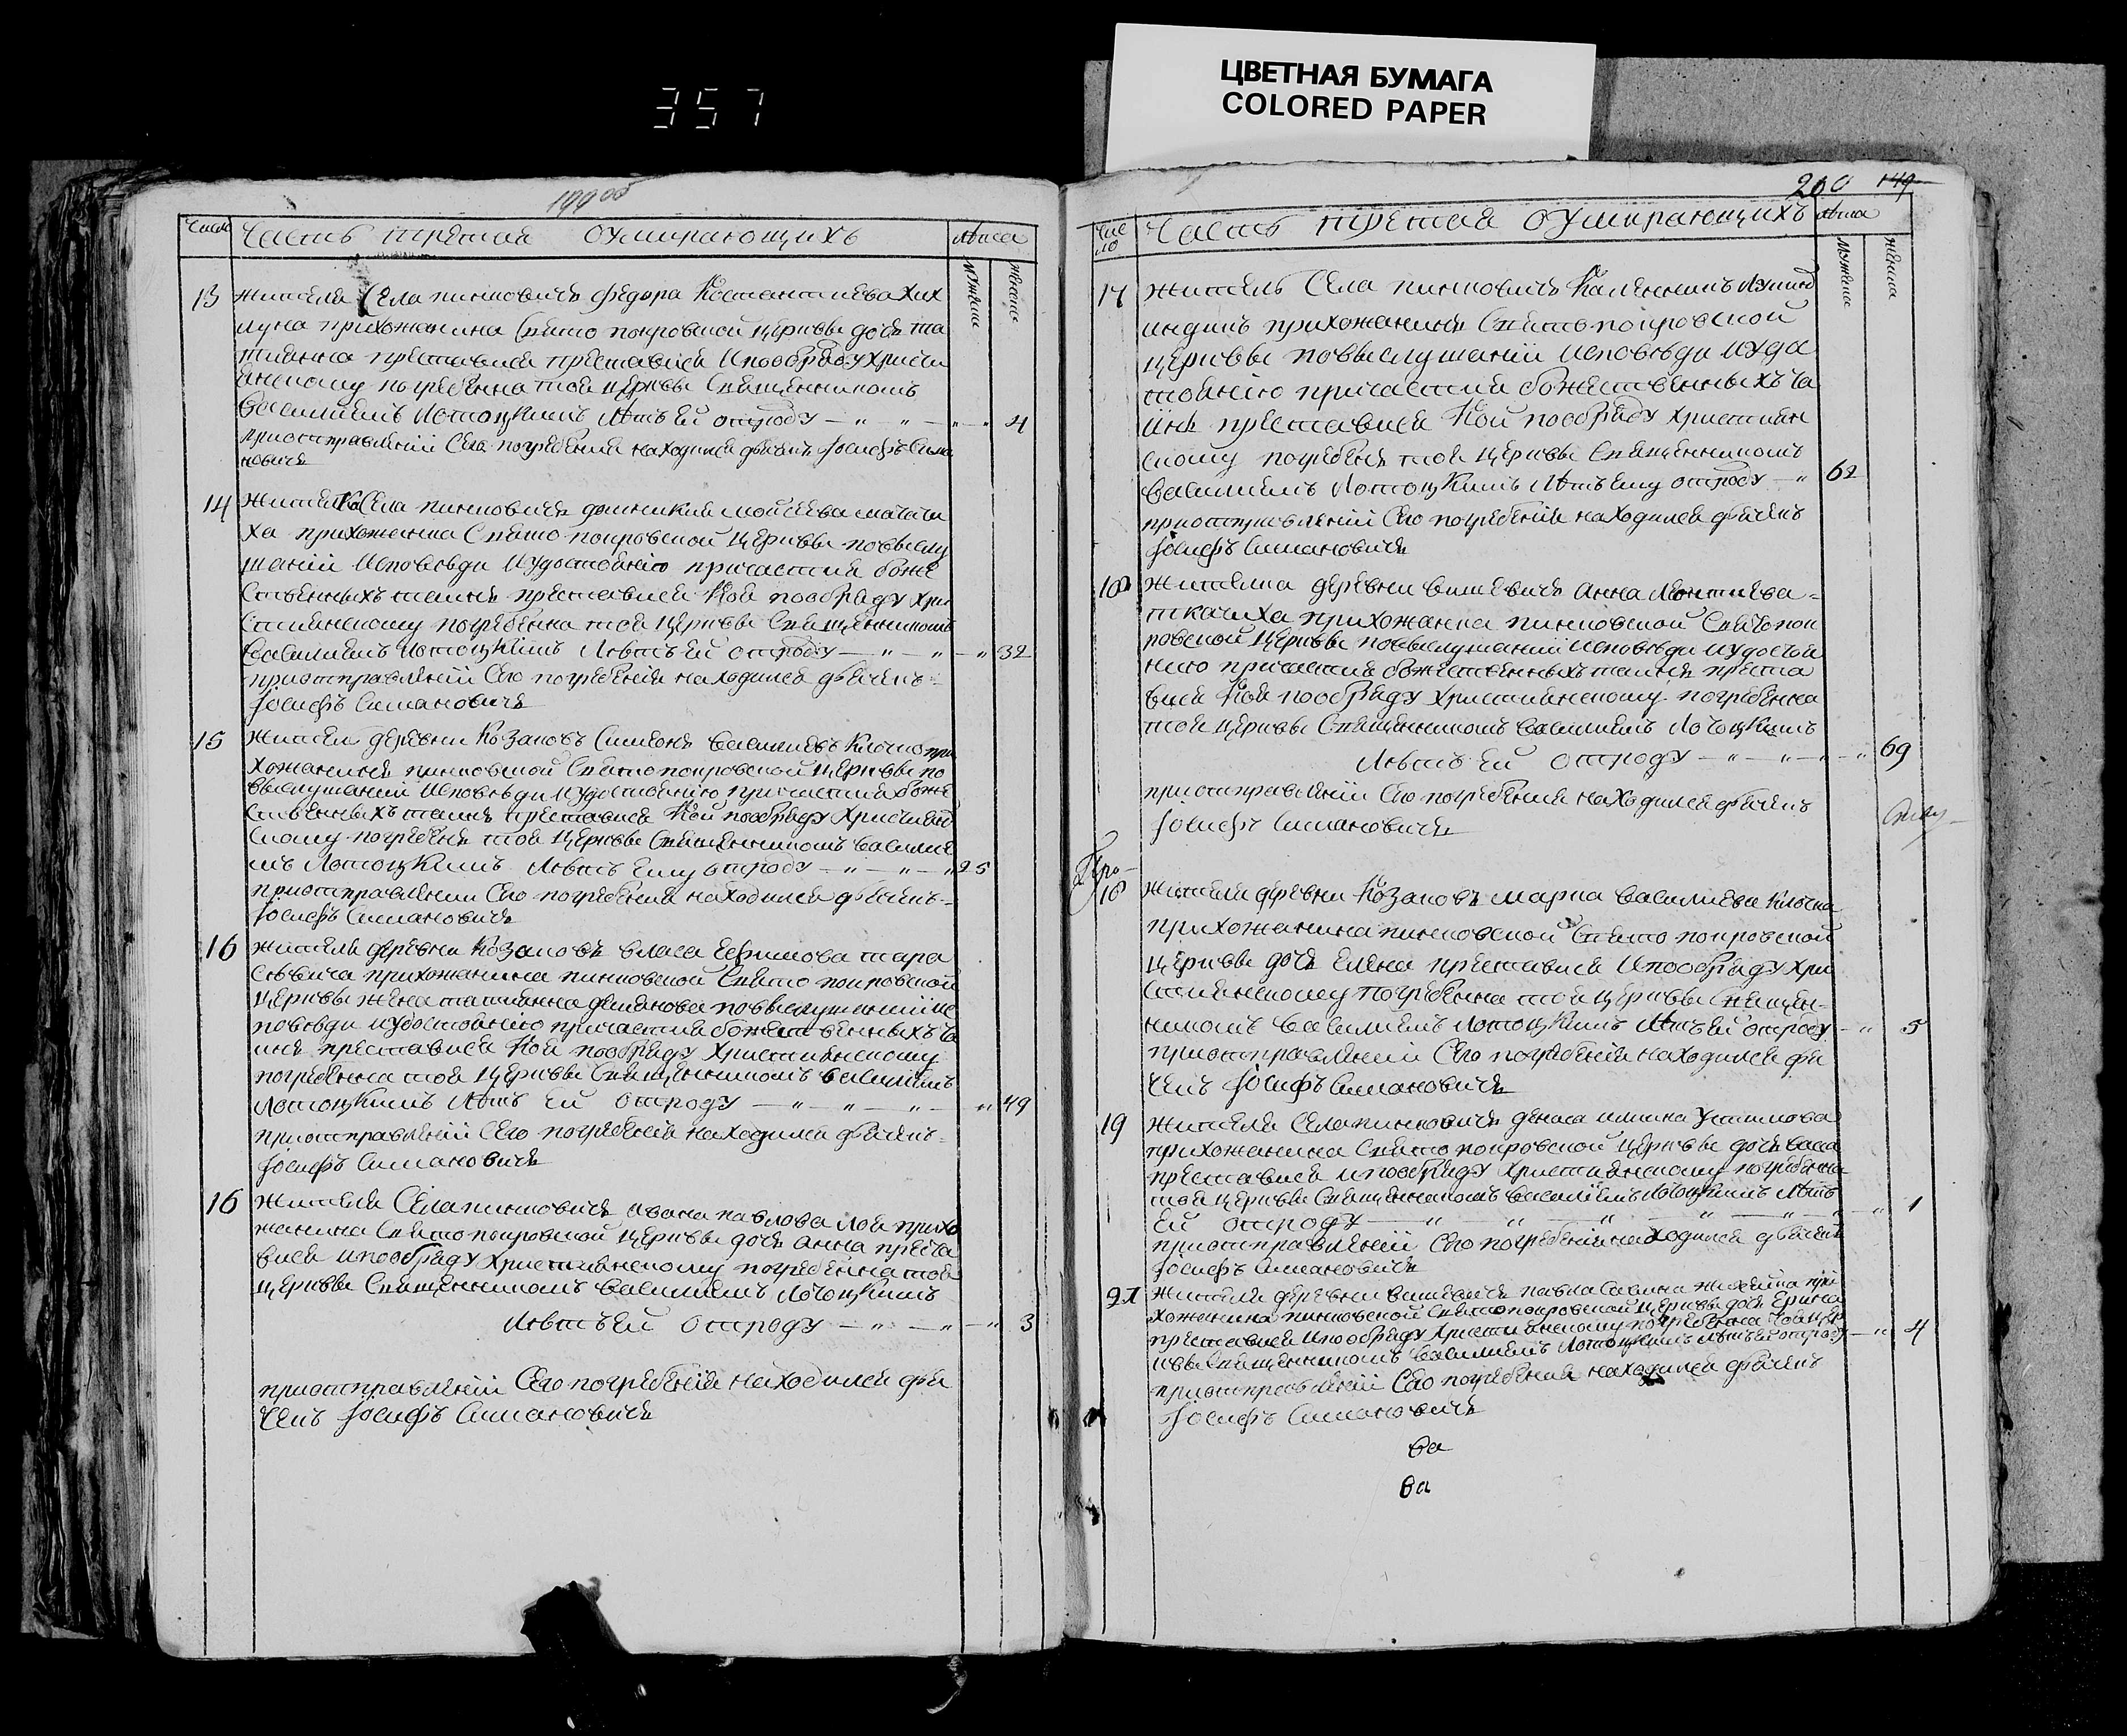 357
ЦВЕТНАЯ БУМАГА
COLORED PAPER
199 об
Число Часть третая оумирающихъ Лѣта
мужеска женска
13 жителя Села пинковичъ федора Костантиева Хих
луна прихожанина Свято покровской церквы дочъ та
тиянна преставися преставися И пообряду христи
анскому погребенна тоя церквы Священникомъ
Василиемъ Лотоцкимъ Лѣтъ ей отроду 4
приотправлении Сего погребения находился дьячекъ Іосифъ Сима
новичъ
14 Жителка Села пинковичъ домникия мойсиева
ха прихожанка Свято покровской церквы повыслу
шании Исповѣди И удостоению причастия боже
ственныхъ таинъ преставися Коя пообряду хри
стиянскому погребенна тоя церквы Священникомъ
Василиемъ Лотоцкимъ Лѣтъ ей отроду 32
приотправлении Сего погребения находился дьячекъ
Іосифъ Симановичъ
15 Жители деревни Козаковъ Симеонъ Василиевъ Клочко при
хожанинъ пинковской Святопокровской церквы по
выслушании Исповѣди И удостоению причастия боже
ственныхъ таинъ преставися Кой пообряду Християн
скому погребенъ тоя церквы Священникомъ Василие
мъ Лотоцкимъ Лѣтъ ему отроду 25
приотправлении Сего погребения находился дьячекъ
Іосифъ Симановичъ
16 жителя деревни Козаковъ власа Ефимова тара
севича прихожанина пинковской Свято покровской
церквы жена татиянна демянова повыслушании ис
повѣди и удостоению причастия божественныхъ та
инъ преставися Коя пообряду Християнскому
погребенна тоя церквы Священникомъ василиемъ
Лотоцкимъ Лѣтъ ей отроду 49
приотправлении Сего погребения находился дьячекъ
Іосифъ Симановичъ
16 жителя Села пинковичъ Ивана павлова Лоя прихо
жанина Свято покровской церквы дочъ анна преста
вися и пообряду Християнскому погребенна тоя
церквы Священникомъ Василиемъ Лотоцкимъ
Лѣтъ ей отроду 3
приотправлении Сего погребения находился дья
чекъ Іосифъ Симановичъ
200 149
Число Часть третая оумирающихъ Лѣта
мужеска женска
17 Житель Села пинковичъ
прихожанинъ Свято покровской
церквы повыслушании исповѣди и удо
стоению причастия божественныхъ та
инъ преставися Кой пообряду Християн
скому погребенъ тоя церквы Священникомъ
Василиемъ Лотоцкимъ Лѣтъ ему отроду 62
приотправлении Сего погребения находился дьячекъ
Іосифъ Симановичъ
18 жителка деревни вишевичъ Анна Леонтиева
ткачиха прихожанка пинковской Святопок
ровской церквы повыслушании исповѣди и удостои
нию причастия божественныхъ таинъ преста
вися Коя пообряду Християнскому погребенна
тоя церквы Священникомъ Василиемъ Лотоцкимъ
Лѣтъ ей отроду 69
приотправлении Сего погребения находился дьячекъ
Іосифъ Симановичъ
18 Жителя деревни Козаковъ марка Василиева Клочка
прихожанина пинковской Свято покровской
церквы дочъ елена преставися и пообряду Хри
стиянскому погребенна тоя церквы Священ
никомъ Василиемъ Лотоцкимъ Лѣтъ ей отроду 5
приотправлении Сего погребения находился дья
чекъ Іосифъ Симановичъ
19 Жителя Села пинковичъ дениса
прихожанина Свято покровской церквы дочъ васса
преставися и пообряду Християнскому погребенна
тоя церквы Священникомъ Василиемъ Лотоцкимъ Лѣтъ
ей отроду 1
приотправлении Сего погребения находился дьячекъ
Іосифъ Симановичъ
21 Жителя деревни вишевичъ павла Савина при
хожанина пинковской Святопокровской церквы дочъ
преставися и пообряду Християнскому погребенна тоя цер
квы Священникомъ Василиемъ Лотоцкимъ Лѣтъ ей отроду 4
приотправлении Сего погребения находился дьячекъ
Іосифъ Симановичъ
ва
ва